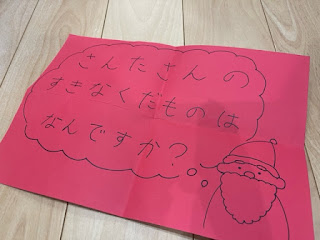 さんたさんの
すきなくだものは
なんですか?